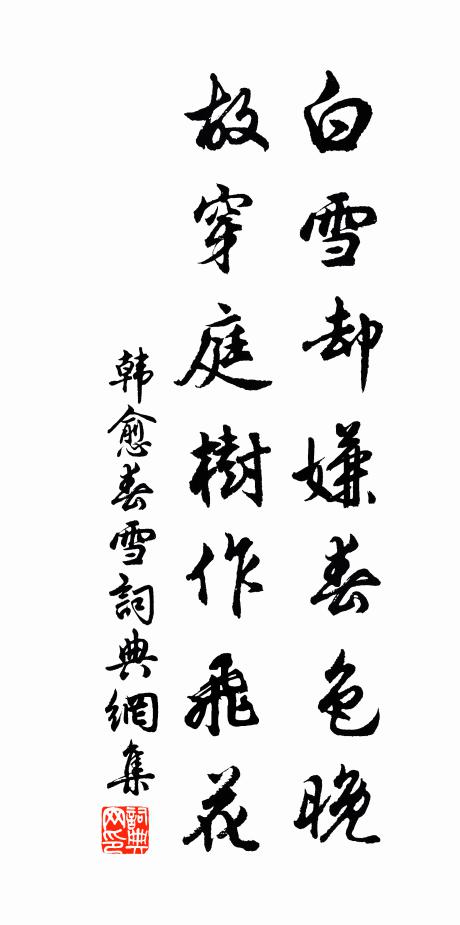 白雪却嫌春色晚
故穿庭樹作飛花
韩愈春雪詞典網集
詞典网印